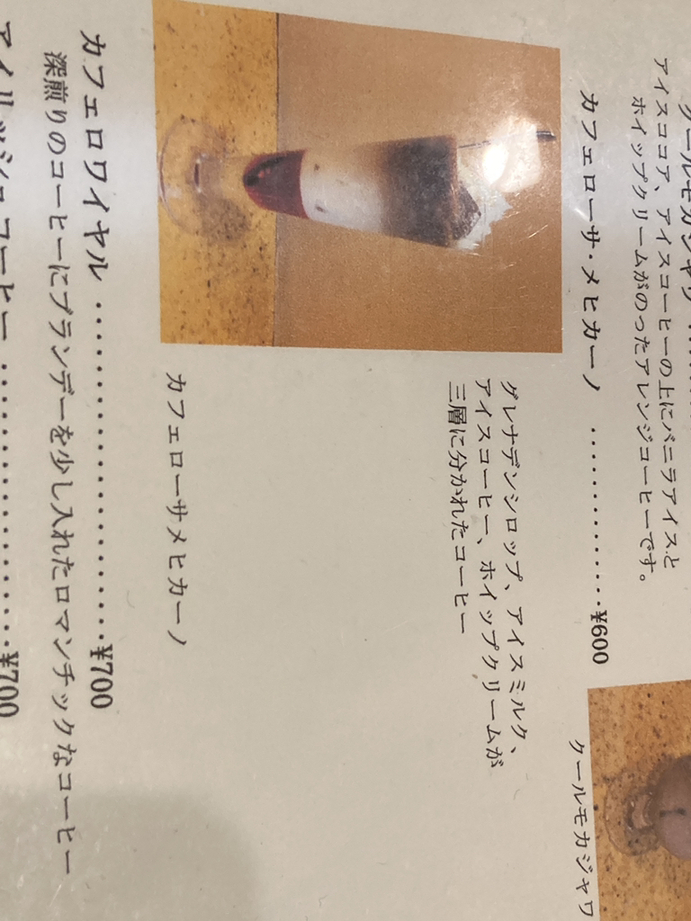 クールモカジャワ
アイスココア、アイスコーヒーの上にバニラアイスと
ホイップクリームがのったアレンジコーヒーです。
カフェローサ・メヒカーノ ‥‥‥‥‥‥‥ ¥600
クールモカジャワ
グレナデンシロップ、アイスミルク、
アイスコーヒー、ホイップクリームが
三層に分かれたコーヒー
カフェローサメヒカーノ
カフェロワイヤル ‥‥‥‥‥‥‥‥‥‥‥‥ ¥700
深煎りのコーヒーにブランデーを少し入れたロマンチックなコーヒー
アイリッシュコーヒー ‥‥‥‥‥‥‥‥‥‥ ¥700